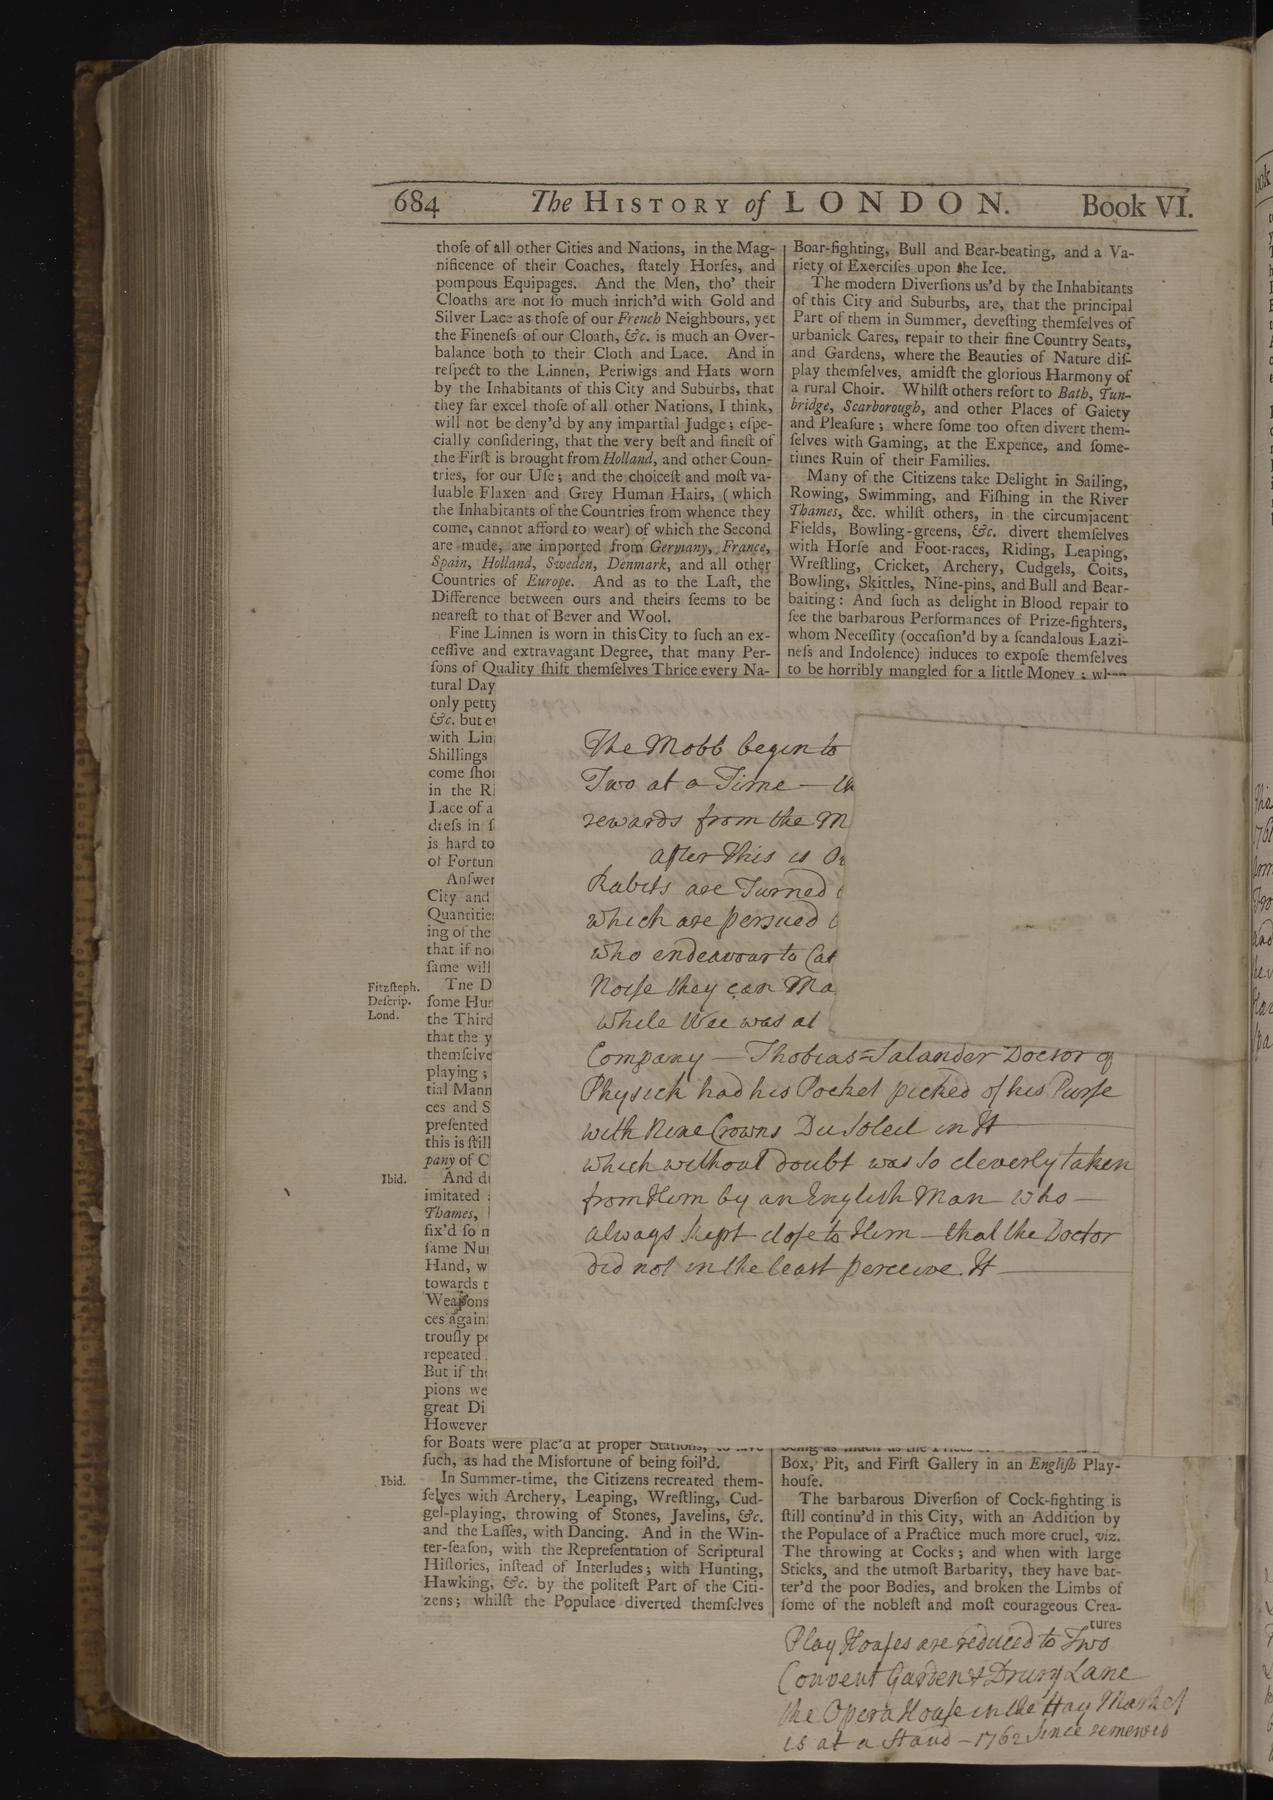 684 The HISTORY of LONDON. Book VI.
thoſe of all other Cities and Nations, in the Mag-
nificence of their Coaches, ſtately Horſes, and
pompous Equipages. And the Men, tho' their
Cloaths are not ſo much inrich'd with Gold and
Silver Lace as thoſe of our French Neighbours, yet
the Fineneſs of our Cloath, &c. is much an Over-
balance both to their Cloth and Lace. And in
reſpect to the Linnen, Periwigs and Hats worn
by the Inhabitants of this City and Suburbs, that
they far excel thoſe of all other Nations, I think,
will not be deny'd by any impartial Judge; eſpe-
cially conſidering, that the very beſt and fineſt of
the Firſt is brought from Holland, and other Coun-
tries, for our Uſe; and the choiceſt and moſt va-
luable Flaxen and Grey Human Hairs, (which
the Inhabitants of the Countries from whence they
come, cannot afford to wear) of which the Second
are made, are imported from Germany, France,
Spain, Holland, Sweden, Denmark, and all other
Countries of Europe. And as to the Laſt, the
Difference between ours and theirs ſeems to be
neareſt to that of Bever and Wool.
Fine Linnen is worn in this City to ſuch an ex-
ceſſive and extravagant Degree, that many Per-
ſons of Quality ſhift themſelves Thrice every Na-
tural Day
only petty
&c. but e
with Lin
Shillings
come ſho
in the Ri
Lace of a
dreſs in ſ
is hard to
of Fortun
Anſwer
City and
Quantitie
ing of the
that if no
ſame will
Tne D
Fitzſteph.
Deſcrip.
Lond.
ſome Hur
the Third
that the y
themſelve
playing;
tial Mann
ces and S
preſented
this is ſtill
pany of C
Ibid.
And d
imitated
Thames,
fix'd ſo n
ſame Nu
Hand, w
towards t
Weapons
ces again
trouſly p
repeated
But if the
pions we
great Di
However
for Boats were plac'd at proper Stations, to ſave
ſuch, as had the Misfortune of being foil'd.
Ibid.
In Summer-time, the Citizens recreated them-
ſelves with Archery, Leaping, Wreſtling, Cud-
gel-playing, throwing of Stones, Javelins, &c.
and the Laſſes, with Dancing. And in the Win-
ter-ſeaſon, with the Repreſentation of Scriptural
Hiſtories, inſtead of Interludes; with Hunting,
Hawking, &c. by the politeſt Part of the Citi-
zens; whilſt the Populace diverted themſelves
Boar-fighting, Bull and Bear-beating, and a Va-
riety of Exerciſes upon the Ice.
The modern Diverſions us'd by the Inhabitants
of this City and Suburbs, are, that the principal
Part of them in Summer, deveſting themſelves of
urbanick Cares, repair to their fine Country Seats,
and Gardens, where the Beauties of Nature diſ-
play themſelves, amidſt the glorious Harmony of
a rural Choir. Whilſt others reſort to Bath, Tun-
bridge, Scarborough, and other Places of Gaiety
and Pleaſure; where ſome too often divert them-
ſelves with Gaming, at the Expence, and ſome-
times Ruin of their Families.
Many of the Citizens take Delight in Sailing,
Rowing, Swimming, and Fiſhing in the River
Thames, &c. whilſt others, in the circumjacent
Fields, Bowling-greens, &c. divert themſelves
with Horſe and Foot-races, Riding, Leaping,
Wreſtling, Cricket, Archery, Cudgels, Coits,
Bowling, Skittles, Nine-pins, and Bull and Bear-
baiting: And ſuch as delight in Blood repair to
ſee the barbarous Performances of Prize-fighters,
whom Neceſſity (occaſion'd by a ſcandalous Lazi-
neſs and Indolence) induces to expoſe themſelves
to be horribly mangled for a little Money; when
The Mobb begin to
Two at a Time —
rewards from the M
after This is
Rabits are Turned
which are persued
who endeavour to Cat
Noiſe they can Ma
while Wee was at
Company — Thobias=Salander Doctor of
Phyſick had his Pocket picked of his Purſe
with Nine Crowns Du Soleil in It
which without doubt was so cleverly taken
from Him by an English Man who —
always kept cloſe to Him — that the Doctor
did not in the least perceive It —
being as much as the
Box, Pit, and Firſt Gallery in an Engliſh Play-
houſe.
The barbarous Diverſion of Cock-fighting is
ſtill continu'd in this City, with an Addition by
the Populace of a Practice much more cruel, viz.
The throwing at Cocks; and when with large
Sticks, and the utmoſt Barbarity, they have bat-
ter'd the poor Bodies, and broken the Limbs of
ſome of the nobleſt and moſt courageous Crea-
tures
Play Houſes are reduced to Two
Convent Garden & Drury Lane
the Opera Houſe in the Hay Market
is at a Stand — 1762 Since renewed